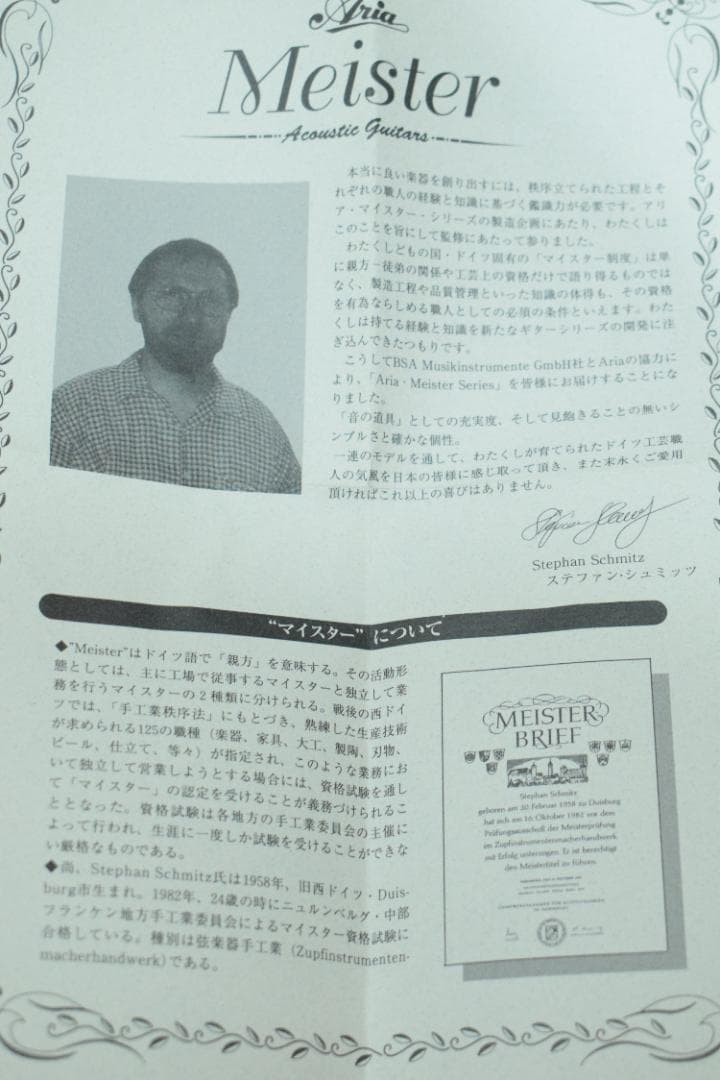 Aria
Meister
Acoustic Guitars
本当に良い楽器を創り出すには、秩序立てられた工程とそ
れぞれの職人の経験と知識に基づく鑑識力が必要です。アリ
ア・マイスター・シリーズの製造企画にあたり、わたくしは
このことを旨にして監修にあたって参りました。
わたくしどもの国・ドイツ固有の「マイスター制度」は単
に親方−徒弟の関係や工芸上の資格だけで語り得るものでは
なく、製造工程や品質管理といった知識の体得も、その資格
を有為ならしめる職人としての必須の条件といえます。わた
くしは持てる経験と知識を新たなギターシリーズの開発に注
ぎ込んできたつもりです。
こうしてBSA Musikinstrumente GmbH社とAriaの協力に
より、「Aria・Meister Series」を皆様にお届けすることにな
りました。
「音の道具」としての充実度、そして見飽きることの無いシ
ンプルさと確かな個性。
一連のモデルを通して、わたくしが育てられたドイツ工芸職
人の気風を日本の皆様に感じ取って頂き、また末永くご愛用
頂ければこれ以上の喜びはありません。
Stephan Schmitz
ステファン・シュミッツ
“マイスター”について
◆"Meister"はドイツ語で「親方」を意味する。その活動形
態としては、主に工場で従事するマイスターと独立して業
務を行うマイスターの2種類に分けられる。戦後の西ドイ
ツでは、「手工業秩序法」にもとづき、熟練した生産技術
が求められる125の職種（楽器、家具、大工、製陶、刃物、
ビール、仕立て、等々）が指定され、このような業務にお
いて独立して営業しようとする場合には、資格試験を通し
て「マイスター」の認定を受けることが義務づけられるこ
ととなった。資格試験は各地方の手工業委員会の主催に
よって行われ、生涯に一度しか試験を受けることができな
い厳格なものである。
◆尚、Stephan Schmitz氏は1958年、旧西ドイツ・Duis-
burg市生まれ。1982年、24歳の時にニュルンベルグ・中部
フランケン地方手工業委員会によるマイスター資格試験に
合格している。種別は弦楽器手工業（Zupfinstrumenten-
macherhandwerk）である。
MEISTER
BRIEF
Stephan Schmitz
geboren am 20. Februar 1958 zu Duisburg
hat sich am 16. Oktober 1982 vor dem
Prüfungsausschuß der Meisterprüfung
im Zupfinstrumentenmacherhandwerk
mit Erfolg unterzogen. Er ist berechtigt
den Meistertitel zu führen.